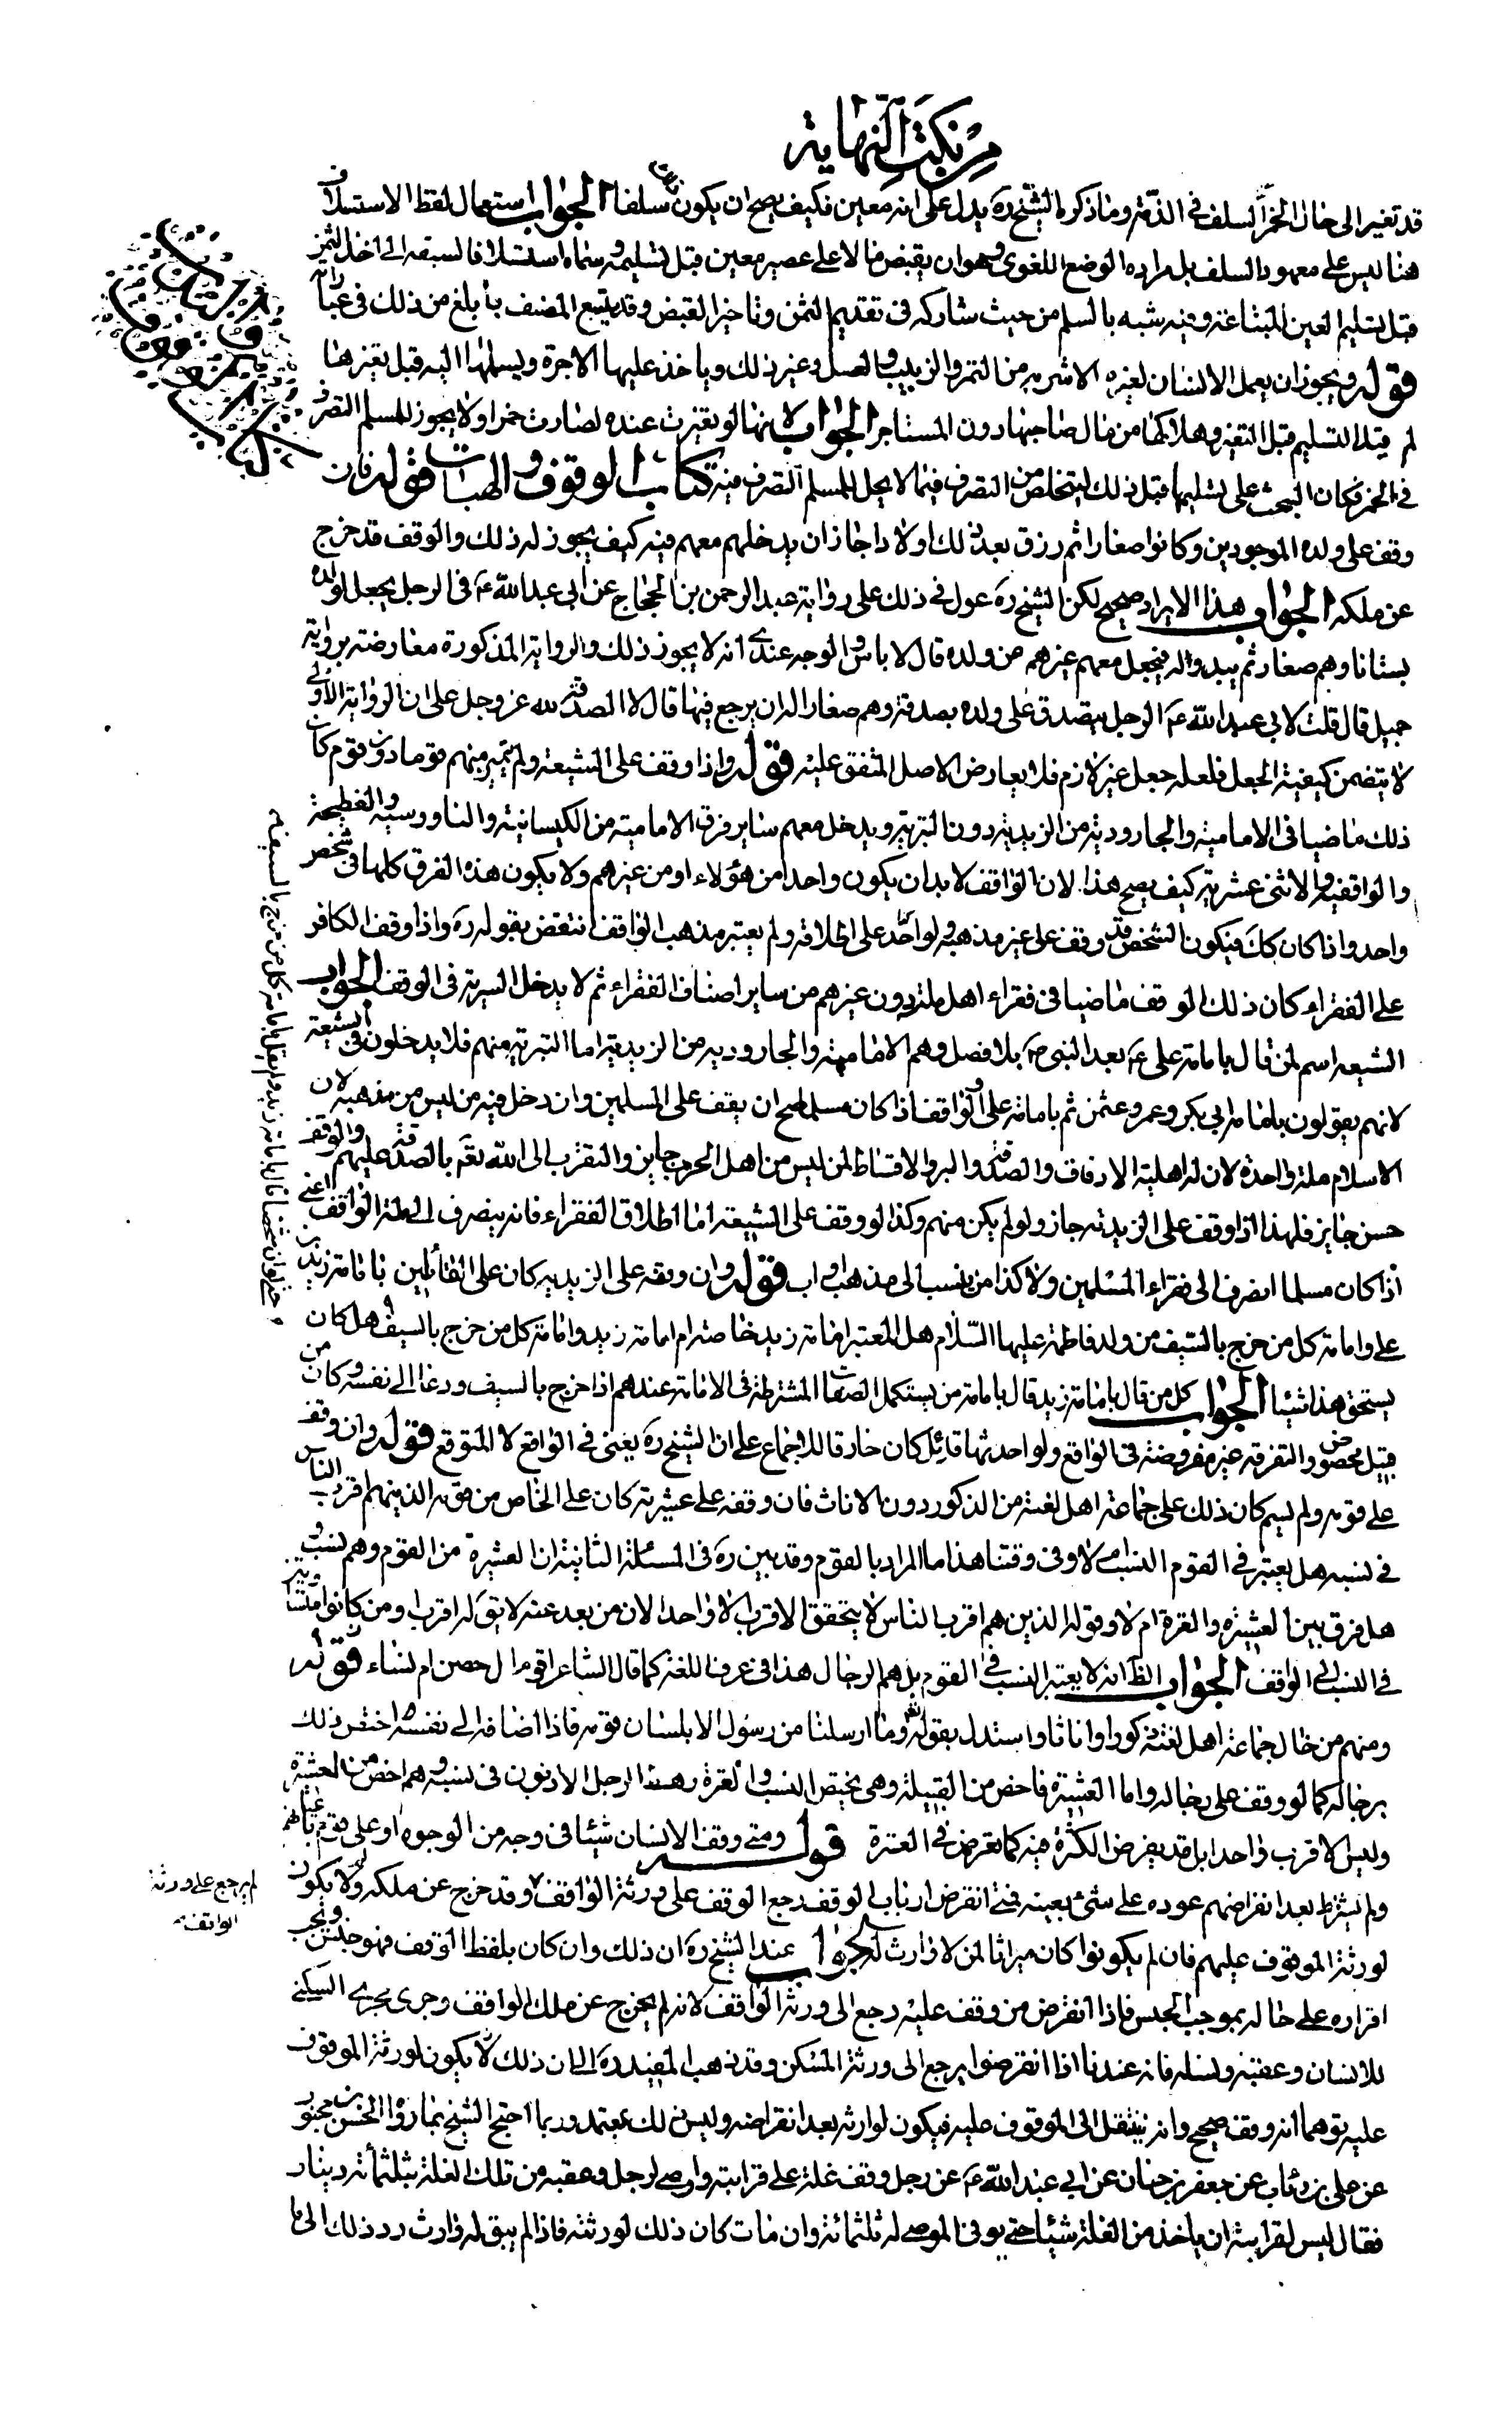 من نكت النهاية
قد تغير الى حال الخمر السلف فى الذمة وما ذكره الشيخ ره يدل على انه معين فكيف يصح ان يكون سلفا الجواب استعمال لفظ الاستسلاف
هنا ليس على معهود السلف بل مراده الوضع اللغوى وهو ان يقبض مالا على عصير معين قبل تسليمه وسماه استسلافا لسبقه الى اخذ الثمن
قبل تسليم العين المبتاعة وفيه شبه بالسلم من حيث شاركه فى تقديم الثمن وتاخير القبض وقد يتسع المصنف بأبلغ من ذلك فى عباراته
قوله ويجوز ان يعمل الانسان لغيره الاشربة من التمر والزبيب والعسل وغير ذلك وياخذ عليها الاجرة ويسلمها اليه قبل تغيرها
لم قيد التسليم قبل التغير وهلاكها من مال صاحبها دون المستاجر الجواب لانها لو تغيرت عنده لصارت خمرا ولا يجوز للمسلم التصرف
فى الخمر فكان البحث على تسليمها قبل ذلك ليتخلص من التصرف فيما لا يحل للمسلم التصرف فيه كتاب الوقوف والهبات قوله فان
وقف على ولده الموجودين وكانوا صغارا ثم رزق بعد ذلك اولادا جاز ان يدخلهم معهم فيه كيف يجوز له ذلك والوقف قد خرج
عن ملكه الجواب هذا الايراد صحيح لكن الشيخ ره عول فى ذلك على رواية عبد الرحمن بن الحجاج عن ابى عبد الله ع فى الرجل يجعل لولده
بستانا وهم صغار ثم يبدو له فيجعل معهم غيرهم من ولده قال لا باس والوجه عندى انه لا يجوز ذلك والرواية المذكورة معارضته برواية
جميل قال قلت لابى عبد الله ع الرجل يتصدق على ولده بصدقة وهم صغار اله ان يرجع فيها قال لا الصدقة لله عز وجل على ان الرواية الاولى
لا يتضمن كيفية الجعل فلعله جعل غير لازم فلا يعارض الاصل المتفق عليه قوله واذا وقف على الشيعة ولم يميز منهم قوما دون قوم كان
ذلك ماضيا فى الامامية والجارودية من الزيدية دون البترية ويدخل معهم ساير فرق الامامية من الكيسانية والناووسية والفطحية
والواقفية والاثنى عشرية كيف يصح هذا لان الواقف لا بد ان يكون واحدا من هؤلاء او من غيرهم ولا يكون هذه الفرق كلها فى شخص
واحد واذا كان كك فيكون الشخص قد وقف على غير مذهبه ولو اخذ على اطلاقه ولم يعتبر مذهب الواقف انتقض بقوله ره واذا وقف الكافر
على الفقراء كان ذلك الوقف ماضيا فى فقراء اهل ملته دون غيرهم من ساير اصناف الفقراء ثم لا يدخل البترية فى الوقف الجواب
الشيعة اسم لمن قال بامامة على ع بعد النبى ص بلا فصل وهم الامامية والجارودية من الزيدية اما البترية منهم فلا يدخلون فى الشيعة
لانهم يقولون بامامة ابى بكر وعمر وعثمن ثم بامامة على والواقف اذا كان مسلما صح ان يقف على المسلمين وان دخل فيه من ليس من مذهبه لان
الاسلام ملة واحدة لان له اهلية الارفاق والصدقة والبر والاقساط لمن ليس من اهل الحرب جايز والتقرب الى الله تعه بالصدقة عليهم والوقف
حسن جايز فلهذا اذا وقف على الزيدية جاز ولو لم يكن منهم وكذا لو وقف على الشيعة اما اطلاق الفقراء فانه ينصرف الى ملة الواقف اعنى
اذا كان مسلما انصرف الى فقراء المسلمين ولا كذا من ينسب الى مذهب او اب قوله وان وقفه على الزيدية كان على القائلين بامامة زيد بن
على وامامة كل من خرج بالسيف من ولد فاطمة عليها السلام هل المعتبر امامة زيد خاصة ام امامة زيد وامامة كل من خرج بالسيف وهل كان
يستحق هذا شيئا الجواب كل من قال بامامة زيد قال بامامة من يستكمل الصفات المشترطة فى الامامة عندهم اذا خرج بالسيف ودعا الى نفسه وكان من
قبيل مخصوص والتفرقة غير مفروضة فى الواقع ولو احدثها قائل كان خارقا للاجماع على ان الشيخ ره يعنى فى الواقع لا المتوقع قوله وان وقف
على قومه ولم يسم كان ذلك على جماعة اهل لغته من الذكور دون الاناث فان وقفه على عشيرته كان على الخاص من قومه الذين هم اقرب الناس
فى نسبه هل يعتبر فى القوم النسب ام لا وفى وقتنا هذا ما المراد بالقوم وقد بين ره فى المسئلة الثانية ان العشيرة من القوم وهم نسب وتير
هل فرق بين العشيرة والعترة ام لا وقوله الذين هم اقرب الناس لا يتحقق الاقرب الا واحدا لان من بعد عنه لا يق له اقرب او من كانوا متساوين
فى النسب الى الواقف الجواب الظ انه لا يعتبر النسب فى القوم بل هم الرجال هذا فى عرف اللغة كما قال الشاعر اقوم ال حصن ام نساء قوله
ومنهم من خال جماعة اهل لغته ذكورا واناثا واستدل بقوله تعه وما ارسلنا من رسول الا بلسان قومه فاذا اضافه الى نفسه اختص ذلك
برجاله كما لو وقف على رجاله واما العشيرة فاخص من القبيلة وهى يختص النسب والعترة رهط الرجل الادنون فى نسبه وهم اخص من العشيرة
وليس الاقرب واحدا بل قد يفرض الكثرة فيه كما تفرض فى العترة قوله ومتى وقف الانسان شيئا فى وجه من الوجوه او على قوم باعيانهم
ولم يشترط بعد انقراضهم عوده على شئ بعينه فمتى انقرض ارباب الوقف رجع الوقف على ورثة الواقف وقد خرج عن ملكه ولم لا يكون
لورثة الموقوف عليهم فان لم يكونوا كان ميراثا لمن لا وارث له الجواب عند الشيخ ره ان ذلك وان كان بلفظ الوقف فهو حبس ويجب
اقراره على حاله بموجب الحبس فاذا انقرض من وقف عليه رجع الى ورثة الواقف لانه لم يخرج عن ملك الواقف وجرى مجرى السكنى
للانسان وعقبه ونسله فانه عندنا اذا انقرضوا يرجع الى ورثة المسكن وقد ذهب المفيد ره الى ان ذلك يكون لورثة الموقوف
عليه توهما انه وقف صحيح وانه ينتقل الى الموقوف عليه فيكون لوارثه بعد انقراضه وليس ذلك بمعتمد وربما احتج الشيخ بما رواه الحسن بن محبوب
عن على بن رئاب عن جعفر بن حنان عن ابى عبد الله ع عن رجل وقف غلة على قرابته واوصى لرجل وعقبه من تلك الغلة بثلثمأة دينار
فقال ليس لقرابته ان ياخذ من الغلة شيئا حتى يوفى الموصى له ثلثمائة وان مات كان ذلك لورثته فاذا لم يبق له وارث رد ذلك الى ما
لم يرجع على ورثة
الواقف